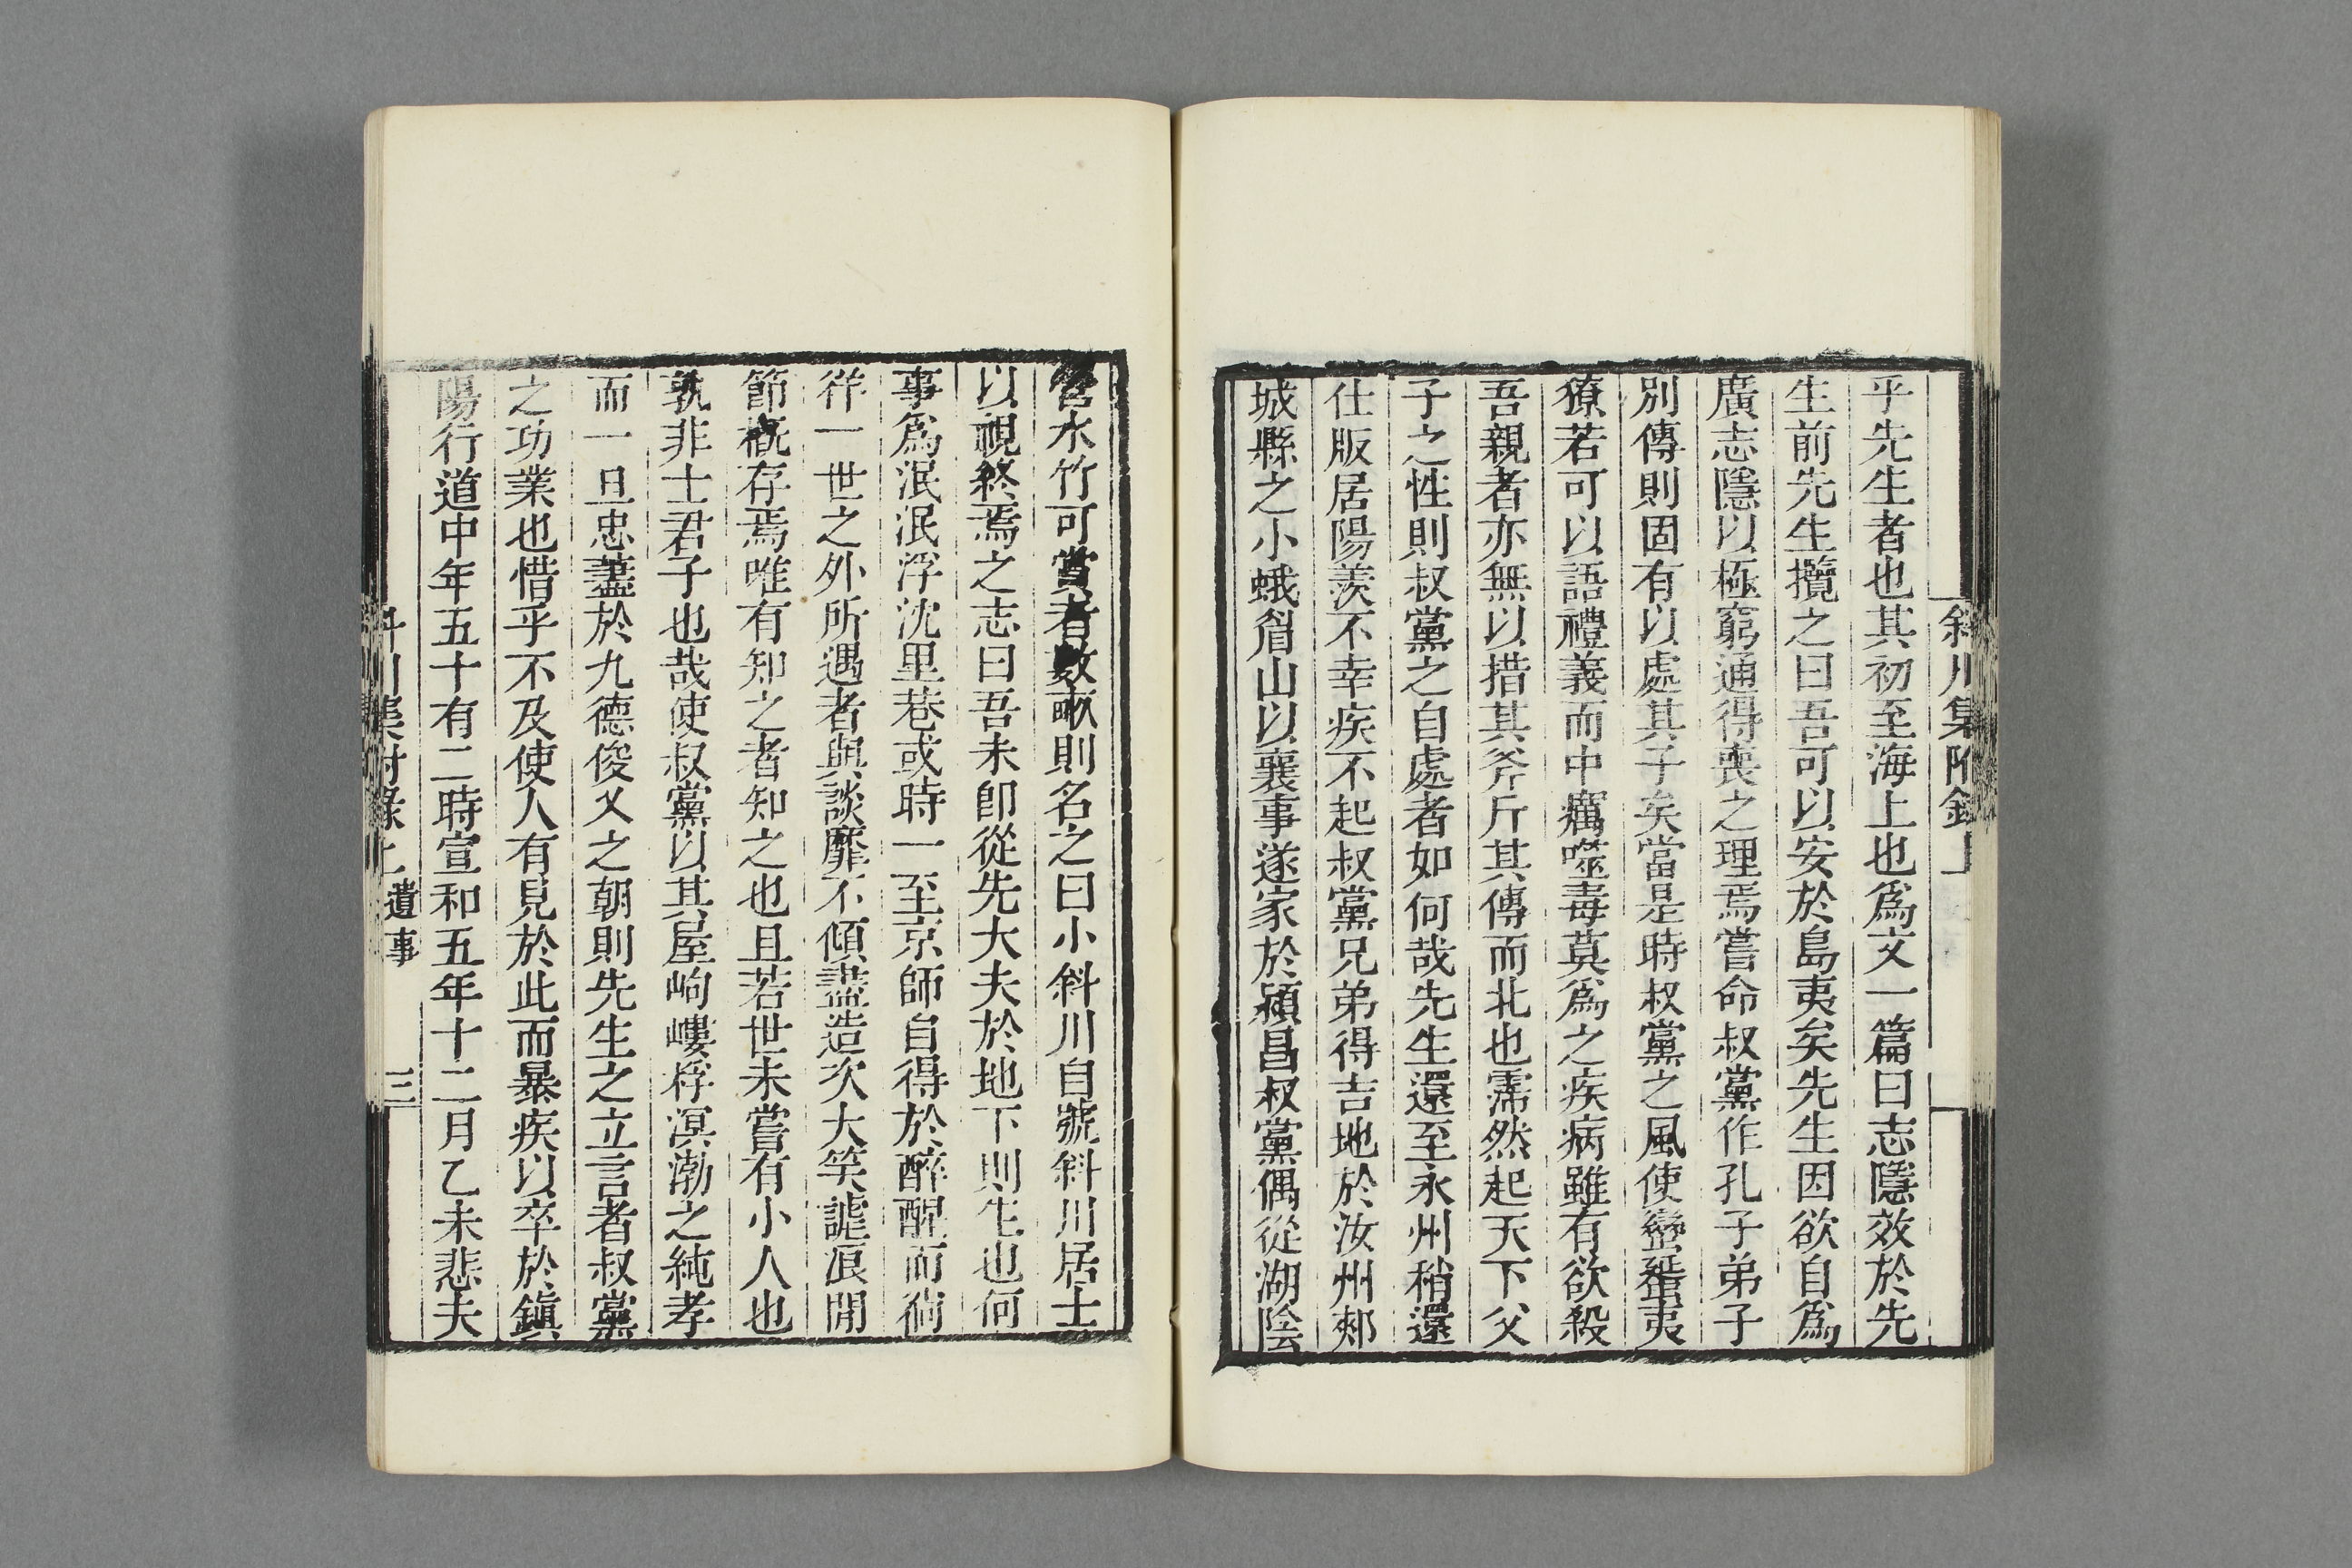 斜川集附錄上
乎先生者也其初至海上也爲文一篇曰志隱效於先
生前先生攬之曰吾可以安於島夷矣先生因欲自爲
廣志隱以極窮通得喪之理焉嘗命叔黨作孔子弟子
別傳則固有以處其子矣當是時叔黨之風使蠻蜑夷
獠若可以語禮義而中癘噬毒莫爲之疾病雖有欲殺
吾親者亦無以措其斧斤其傳而北也霈然起天下父
子之性則叔黨之自處者如何哉先生還至永州稍還
仕版居陽羨不幸疾不起叔黨兄弟得吉地於汝州郟
城縣之小峨眉山以襄事遂家於潁昌叔黨偶從湖陰
營水竹可賞者數畝則名之曰小斜川自號斜川居士
以視終焉之志曰吾未卽從先大夫於地下則生也何
事爲泯泯浮沈里巷或時一至京師自得於醉醒而徜
徉一世之外所遇者與談靡不傾盡造次大笑謔浪閒
節槩存焉唯有知之者知之也且若世未嘗有小人也
孰非士君子也哉使叔黨以其屋岣嶁桴溟渤之純孝
而一旦忠藎於九德俊乂之朝則先生之立言者叔黨
之功業也惜乎不及使人有見於此而暴疾以卒於鎭
陽行道中年五十有二時宣和五年十二月乙未悲夫
斜川集附錄上 遺事 三